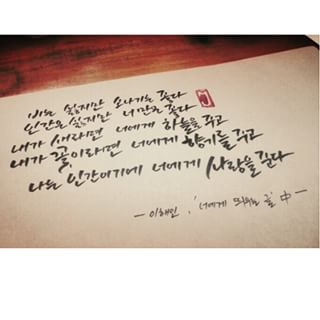 비는 싫지만 소나기는 좋다
인간은 싫지만 너만은 좋다
내가 새라면 너에게 하늘을 주고
내가 꽃이라면 너에게 향기를 주고
나는 인간이기에 너에게 사랑을 준다
- 이해인, '너에게 띄우는 글' 中 -